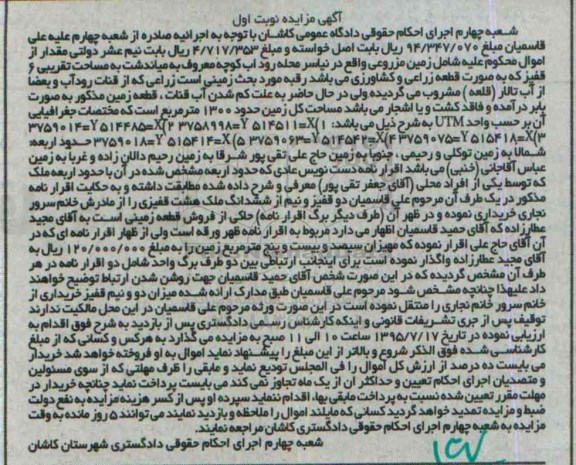 آگهی مزایده نوبت اول
شعبه چهارم اجرای احکام حقوقی دادگاه عمومی کاشان با توجه به اجرائیه صادره از شعبه چهارم علیه علی
قاسمیان مبلغ ۹۴/۳۴۷/۰۷۰ ریال بابت اصل خواسته و مبلغ ۴/۷۱۷/۳۵۳ ریال بابت نیم عشر دولتی مقدار از
اموال محکوم علیه شامل زمین مزروعی واقع در نیاسر محله رود اب کوچه معروف به میاندشت به مساحت تقریبی ۶
قفیز که به صورت قطعه زراعی و کشاورزی می باشد رقبه مورد بحث زمینی است زراعی که از قنات رودآب و بعضا
از آب تالار (قلعه) مشروب می گردیده ولی در حال حاضر به علت کم شدن آب قنات ، قطعه زمین مذکور به صورت
بایر در آمده و فاقد کشت و یا اشجار می باشد مساحت کل زمین حدود ۱۳۰۰ مترمربع است که مختصات جغرافیایی
آن بر حسب واحد UTM به شرح ذیل می باشد: ۱)X=۵۱۴۵۱۱ Y=۳۷۵۸۹۹۸ ۲)X=۵۱۴۴۸۵ Y=۳۷۵۹۰۱۴
۳)X=۵۱۵۴۱۸ Y=۳۷۵۹۰۷۵ ۴)X=۵۱۴۵۴۲ Y=۳۷۵۹۰۶۳ ۵)X=۵۱۵۴۱۴ Y=۳۷۵۹۰۱۸ حدود اربعه:
شمالا به زمین توکلی و رحیمی ، جنوبا به زمین حاج علی تقی پور شرقا به زمین رحیم دالان زاده و غربا به زمین
عباس آقاجانی (خنبی) می باشد اقرار نامه دست نویس عادی که حدود اربعه مشخص شده در آن با حدود اربعه ملک
که توسط یکی از افراد محلی (آقای جعفر تقی پور) معرفی و شرح داده شده مطابقت داشته و به حکایت اقرار نامه
مذکور در یک طرف آن مرحوم علی قاسمیان دو قفیز و نیم از ششدانگ ملک هشت قفیزی را از مادرش خانم سرور
نجاری خریداری نموده و در ظهر آن (طرف دیگر برگ اقرار نامه) حاکی از فروش قطعه زمینی است به آقای مجید
عطارزاده که آقای حمید قاسمیان اظهار می دارد مربوط به اقرار نامه ظهر ورقه است ولی از ظهار اقرار نامه ای که در
آن آقای حاج علی اقرار نموده که مهیزان سیصد و بیست و پنج مترمربع زمین را به مبلغ ۱۲۰/۰۰۰/۰۰۰ ریال به
آقای مجید عطارزاده واگذار نموده است برای اینجانب ارتباطی بین دو طرف برگ واحد شامل دو اقرار نامه در هر
طرف آن مشخص گردیده که در این صورت شخص آقای حمید قاسمیان جهت روشن شدن ارتباط توضیح خواهند
داد علیهذا چنانچه مشخص شود مرحوم علی قاسمیان طبق مدارک ارائه شده میزان دو و نیم قفیز خریداری از
خانم سرور خانم نجاری را منتقل نموده است در این صورت ورثه مرحوم علی قاسمیان در این محل مالکیت ندارند
توقیف پس از جری تشریفات قانونی و اینکه کارشناس رسمی دادگستری پس از بازدید به شرح فوق اقدام به
ارزیابی نموده در تاریخ ۱۳۹۵/۷/۱۷ ساعت ۱۰ الی ۱۱ صبح به مزایده می گذارد به هرکس و کسانی که از مبلغ
کارشناسی شده فوق الذکر شروع و بالاتر از این مبلغ را پیشنهاد نماید اموال به او فروخته خواهد شد خریدار
می بایست ده درصد از ارزش کل اموال را فی المجلس تودیع نماید و مابقی را ظرف مهلتی که از سوی مسئولین
و متصدیان اجرای احکام تعیین و حداکثر ان از یک ماه تجاوز نمی کند می بایست پرداخت نماید چنانچه خریدار در
مهلت مقرر تعیین شده نسبت به پرداخت مابقی بها، اقدام ننماید سپرده او پس از کسر هزینه مزایده به نفع دولت
ضبط و مزایده تمدید خواهد گردید کسانی که مایلند اموال را ملاحظه و بازدید نمایند می توانند ۵ روز مانده به وقت
مزایده به شعبه چهارم اجرای احکام حقوقی دادگستری کاشان مراجعه نمایند.
شعبه چهارم اجرای احکام حقوقی دادگستری شهرستان کاشان